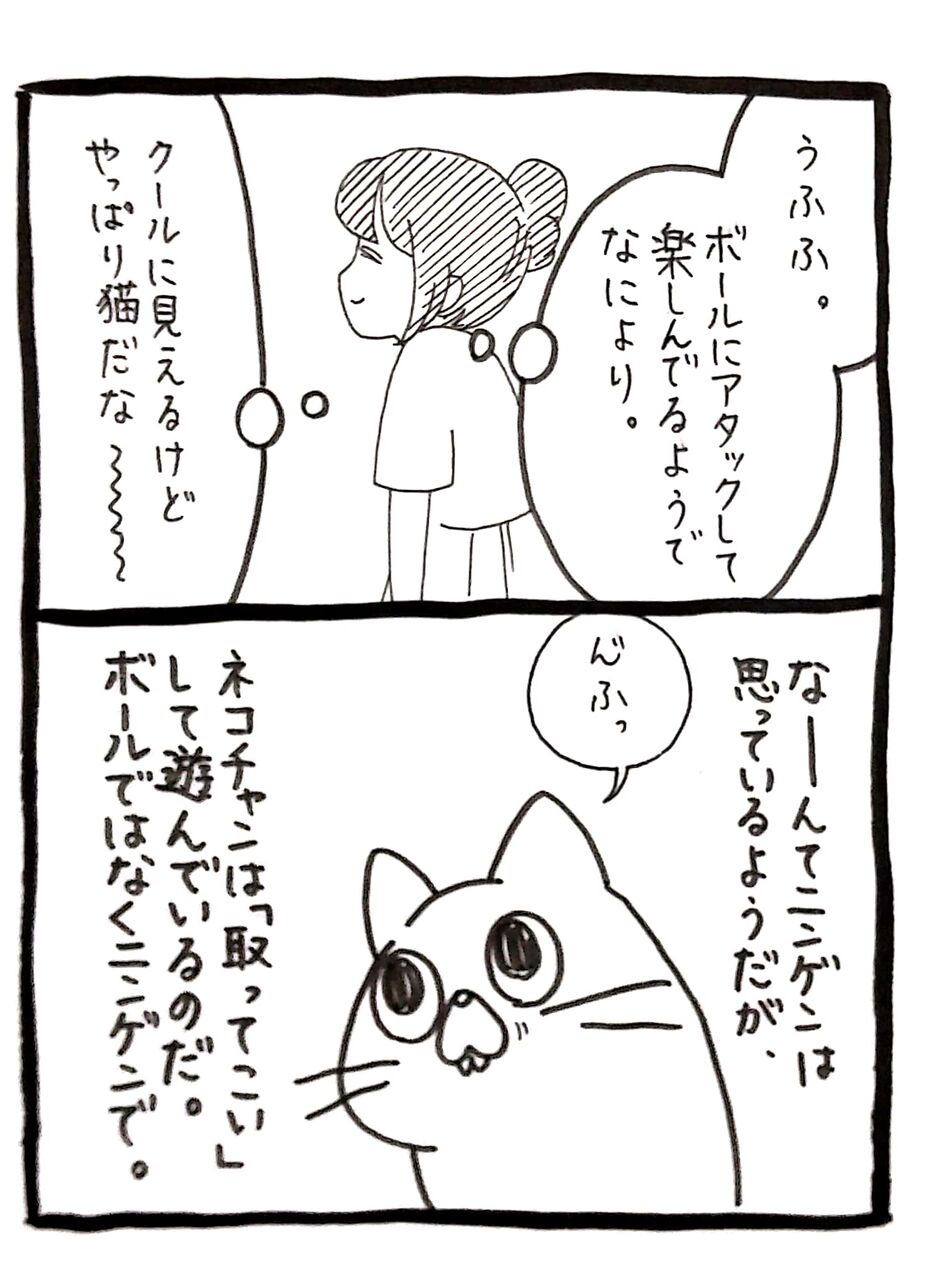 うふふ。
ボールにアタックして
楽しんでるようで
なにより。
クールに見えるけど
やっぱり猫だな〜〜〜〜
なーんてニンゲンは
思っているようだが、
んふっ
ネコチャンは「取ってこい」
して遊んでいるのだ。
ボールではなくニンゲンで。